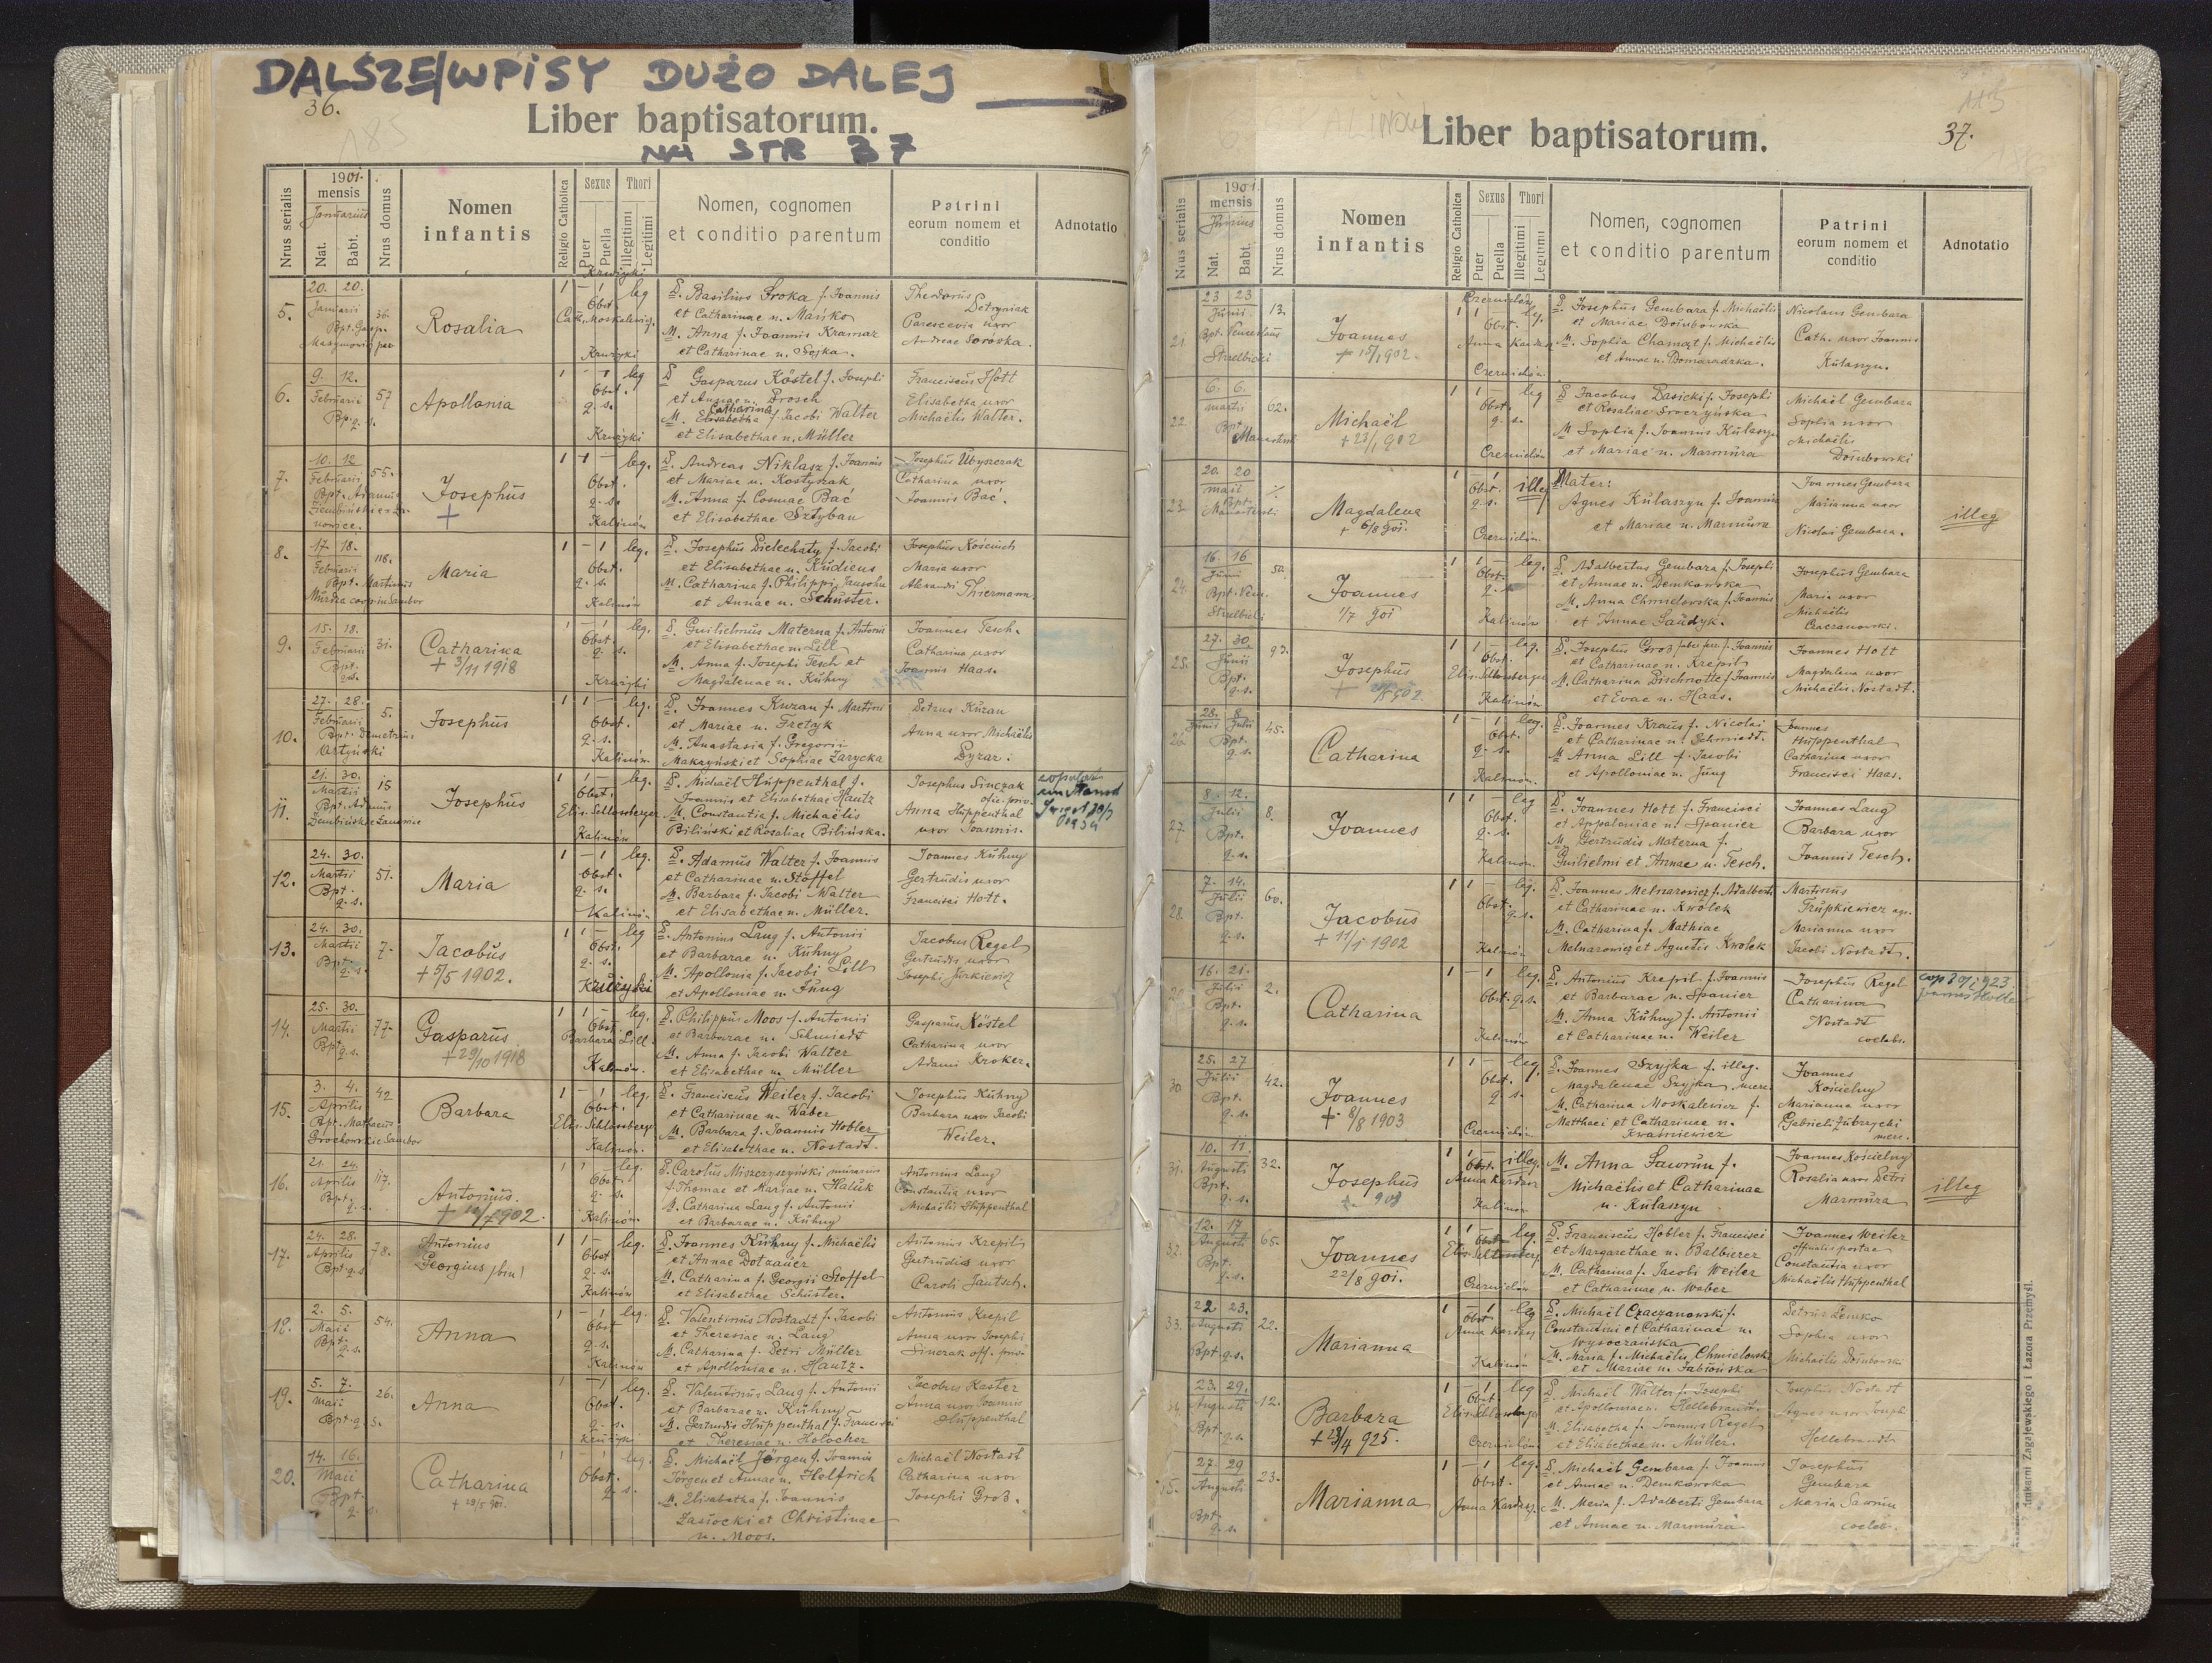 DALSZE WPISY DUŻO DALEJ
36.
185
Liber baptisatorum.
NA STR 37
Nrus serialis
1901.
mensis
Januarius
Nat.
Babt.
Nrus domus
Nomen
infantis
Religio Catholica
Sexus
Puer
Puella
Thori
Illegitimi
Legitimi
Nomen, cognomen
et conditio parentum
Patrini
eorum nomem et
conditio
Adnotatio
5.
20. 20.
Januarii
36
Rosalia
Krużyki
1 - 1 leg
Obst.
P. Basilius Sroka f. Joannis
et Catharinae n. Mariko
M. Anna f. Joannis Kramar
et Catharinae n. Sojka.
Theodorus
Petryniak
Parescevia uxor
Andreae Sorovka.
6.
9. 12.
Februarii
Bp. q. s.
57
Apollonia
Krużyki
1 - 1 leg
Obst.
q. s.
P. Gasparus Köstel f. Josephi
et Annae n. Prosch
M. Catharina f. Jacobi Walter
et Elisabethae n. Müller
Franciscus Hott
Elisabetha uxor
Michaëlis Walter.
7.
10. 12
Februarii
55.
Bpt. Adamus
Josephus
+
Krużyki
1 1 - leg.
Obst.
q. s.
P. Andreas Niklasz f. Joannis
et Mariae n. Kostyszak
M. Anna f. Cosmae Bać
et Elisabethae Sztyban
Josephus Ubyszczak
Catharina uxor
Joannis Bać.
8.
17. 18.
Februarii
118.
Bpt. Martinus
Murdza coop. in Sambor
Maria
Kalinów
1 - 1 leg.
Obst.
q. s.
P. Josephus Pielechaty f. Jacobi
et Elisabethae n. Kudiens
M. Catharina f. Philippi Jansohn
et Annae n. Schuster.
Josephus Kościuch
Maria uxor
Alexandri Thiermann.
9.
15. 18.
Februarii
Bpt.
q. s.
31.
Catharina
+ 3/11 1918
Kalinów
1 - 1 leg.
Obst.
q. s.
P. Guilielmus Materna f. Antonii
et Elisabethae n. Lill
M. Anna f. Josephi Tesch et
Magdalenae n. Kühny
Joannes Tesch.
Catharina uxor
Joannis Haas.
10.
27. 28.
Februarii
5.
Bpt. Demetrius
Ortyński
Josephus
Krużyki
1 1 - leg.
Obst.
q. s.
P. Joannes Kuzan f. Martini
et Mariae n. Fretyk
M. Anastasia f. Gregorii
Makzyński et Sophiae Zarycka
Petrus Kuzan
Anna uxor Michaëlis
Pyzar.
11.
21. 30.
Martii
15
Bpt. Adamus
Josephus
Kalinów
1 1 - leg.
Obst.
Elis. Schlossberger
P. Michaël Huppenthal f.
Joannis et Elisabethae Hautz
M. Constantia f. Michaëlis
Biliński et Rosaliae Bilińska.
Josephus Sinczak
Anna Huppenthal
uxor Joannis.
12.
24. 30.
Martii
Bpt.
q. s.
51.
Maria
Kalinów
1 - 1 leg.
Obst.
q. s.
P. Adamus Walter f. Joannis
et Catharinae n. Stoffel
M. Barbara f. Jacobi Walter
et Elisabethae n. Müller.
Joannes Kühny
Gertrudis uxor
Francisci Hott.
13.
24. 30.
Martii
Bpt.
q. s.
7.
Jacobus
+ 5/5 1902.
Kalinów
1 1 - leg
Obst.
q. s.
P. Antonius Lang f. Antonii
et Barbarae n. Kühny
M. Apollonia f. Jacobi Lill
et Apolloniae n. Jung
Jacobus Regel
Gertrudis uxor
Josephi Jurkiewicz
14.
25. 30.
Martii
Bpt.
q. s.
77.
Gasparus
+ 29/10 1918
Krużyki
1 1 - leg.
Obst.
Barbara Lill.
P. Philippus Moos f. Antonii
et Barbarae n. Schmiedt
M. Anna f. Jacobi Walter
et Elisabethae n. Müller
Gasparus Köstel
Catharina uxor
Adami Kroker.
15.
3. 4.
Aprilis
42
Bpt. Mathaeus
Barbara
Kalinów.
1 - 1 leg.
Obst.
Elis. Schlossberger
P. Franciscus Weiler f. Jacobi
et Catharinae n. Waber
M. Barbara f. Joannis Hobler
et Elisabethae n. Nostadt.
Josephus Kühny
Barbara uxor Jacobi
Weiler.
16.
21. 24.
Aprilis
Bpt.
q. s.
117.
Antonius.
Kalinów.
1 1 - leg.
Obst.
q. s.
P. Carolus Miszczyszyński murarius
f. Thomae et Mariae n. Haluk
M. Catharina Lang f. Antonii
et Barbarae n. Kühny
Antonius Lang
Constantia uxor
Michaëlis Huppenthal
17.
24. 28.
Aprilis
Bpt. q. s.
78.
Antonius
Georgius (bin)
Kalinów
1 1 - leg.
Obst.
q. s.
P. Joannes Kühny f. Michaëlis
et Annae Dotzauer
M. Catharina f. Georgii Stoffel
et Elisabethae Schuster.
Antonius Krepil
Gertrudis uxor
Caroli Jautsch.
18.
2. 5.
Maii
Bpt.
q. s.
54.
Anna
Kalinów
1 - 1 leg.
Obst.
q. s.
P. Valentinus Nostadt f. Jacobi
et Theresiae n. Lang
M. Catharina f. Petri Müller
et Apolloniae n. Hautz.
Antonius Krepil
Anna uxor Josephi
Sinczak off. priv.
19.
5. 7.
Maii
Bpt. q. s.
26.
Anna
Kalinów
1 - 1 leg.
Obst.
q. s.
P. Valentinus Lang f. Antonii
et Barbarae n. Kühny
M. Gertrudis Huppenthal f. Francisci
et Theresiae n. Holocher
Jacobus Kaster
Anna uxor Joannis
Huppenthal
20.
14. 16.
Maii
Bpt.
q. s.
Catharina
+ 29/5 901.
Krużyki
1 - 1 leg.
Obst.
q. s.
P. Michaël Jörgen f. Joannis
Jörgen et Annae n. Helfrich
M. Elisabetha f. Joannis
Zasiocki et Christinae
n. Moos.
Michaël Nostadt
Catharina uxor
Josephi Groß.
115
37.
Liber baptisatorum.
Nrus serialis
1901.
mensis
Junius
Nat.
Babt.
Nrus domus
Nomen
infantis
Religio Catholica
Sexus
Puer
Puella
Thori
Illegitimi
Legitimi
Nomen, cognomen
et conditio parentum
Patrini
eorum nomem et
conditio
Adnotatio
21.
23 23
Junii
13.
Bpt. Venceslaus
Strzelbicki
Joannes
+ 15/1 902.
1 1 - leg.
Obst.
P. Josephus Gembara f. Michaëlis
et Mariae Dombowska
M. Sophia Chamot f. Michaëlis
et Annae n. Domaradzka.
Nicolaus Gembara
Cath. uxor Joannis
Kulaszyn.
22.
6. 6.
martii
Bpt.
62.
Michaël
+ 23/1 902
1 1 - leg
Obst.
q. s.
P. Jacobus Pasicki f. Josephi
et Rosaliae
M. Sophia f. Joannis Kulaszyn
et Mariae n. Marmura
Michaël Gembara
Sophia uxor
Michaëlis
Dombowski
23.
20. 20
maii
Bpt.
Magdalena
+ 6/8 901.
1 - 1
Obst. illeg
q. s.
Mater:
Agnes Kulaszyn f. Joannis
et Mariae n. Marmura
Joannes Gembara
Marianna uxor
Nicolai Gembara.
illeg
24.
16. 16
Junii
50.
Bpt. Venc.
Strzelbicki
Joannes
1/7 901
1 1 - leg.
Obst.
q. s.
P. Adalbertus Gembara f. Josephi
et Annae n. Demkowska
M. Anna Chmielowska f. Joannis
et Annae Saudyk.
Josephus Gembara
Maria uxor
Michaëlis
Czaczanowski.
25.
27. 30.
Junii
Bpt.
q. s.
93.
Josephus
Kalinów
1 1 - leg.
Obst.
Elis. Schlossberger
P. Josephus Groß f. Joannis
et Catharinae n. Krepil
M. Catharina Bischnotte f. Joannis
et Evae n. Haas.
Joannes Hott
Magdalena uxor
Michaëlis Nostadt.
26.
28. 8
Junii Julii
Bpt.
q. s.
45.
Catharina
Kalinów
1 - 1 leg.
Obst.
q. s.
P. Joannes Kraus f. Nicolai
et Catharinae n. Schmiedt.
M. Anna Lill f. Jacobi
et Apolloniae n. Jung
Joannes
Huppenthal
Catharina uxor
Francisci Haas.
27.
8. 12.
Julii
Bpt.
q. s.
8.
Joannes
Kalinów.
1 1 - leg
Obst.
q. s.
P. Joannes Hott f. Francisci
et Appoloniae n. Spanier
M. Gertrudis Materna f.
Guilielmi et Annae n. Tesch.
Joannes Lang
Barbara uxor
Joannis Tesch.
28.
7. 14.
Julii
Bpt.
q. s.
60.
Jacobus
+ 11/1 1902
Kalinów.
1 1 - leg.
Obst.
q. s.
P. Joannes Melnarowicz f. Adalberti
et Catharinae n. Kwolek
M. Catharina f. Mathiae
Melnarowicz et Agnetis Kwolek
Martinus
Trupkiewicz agr.
Marianna uxor
Jacobi Nostadt.
29.
16. 21.
Julii
Bpt.
q. s.
2.
Catharina
Kalinów
1 - 1 leg.
Obst. q. s.
P. Antonius Krepil f. Joannis
et Barbarae n. Spanier
M. Anna Kühny f. Antonii
et Catharinae n. Weiler
Josephus Regel
Catharina
Nostadt
coelebs.
30.
25. 27
Julii
Bpt.
q. s.
42.
Joannes
+ 8/8 1903
Kalinów
1 1 - leg.
Obst.
q. s.
P. Joannes Szyjka f. illeg.
Magdalenae Szyjka merc.
M. Catharina Moskalewicz f.
Matthaei et Catharinae n.
Kwaśniewicz
Joannes
Kościelny
Marianna uxor
Gabrieli Zubrzycki
merc.
31.
10. 11.
Augusti
Bpt.
q. s.
32.
Josephus
1 1 - illeg.
Obst.
M. Anna Saworun f.
Michaëlis et Catharinae
n. Kulaszyn
Joannes Kościelny
Rosalia uxor Petri
Marmura
illeg
32.
12. 17
Augusti
Bpt.
q. s.
65.
Joannes
22/8 901.
Kalinów
1 1 - leg.
P. Franciscus Hobler f. Francisci
et Margarethae n. Balbierer
M. Catharina f. Jacobi Weiler
et Catharinae n. Waber
Joannes Weiler
officialis postae
Constantia uxor
Michaëlis Huppenthal
33.
22 23.
Augusti
Bpt. q. s.
22.
Marianna
1 - 1 leg
Obst
P. Michaël Czaczanowski f.
Constantini et Catharinae n.
Wysoczańska
M. Maria f. Michaëlis Chmielowski
et Mariae n. Jabłońska
Petrus Lenko
Sophia uxor
34.
23. 29.
Augusti
Bpt.
q. s.
12.
Barbara
+ 23/4 925.
Kalinów
1 - 1 leg
Obst.
Elis. Schlossberger
P. Michaël Walter f. Josephi
et Apolloniae n. Hellebrandt.
M. Elisabetha f. Joannis Regel
et Elisabethae n. Müller.
Josephus Nostadt
Agnes uxor Josephi
Hellebrandt
35.
27. 29
Augusti
Bpt.
q. s.
23.
Marianna
1 - 1 leg.
Obst.
P. Michaël Gembara f. Joannis
et Annae n. Demkowska
M. Maria f. Adalberti Gembara
et Annae n. Marmura
Josephus
Gembara
Maria Saworun
coeleb.
Drukarni Zagajewskiego i Łazora Przemyśl.